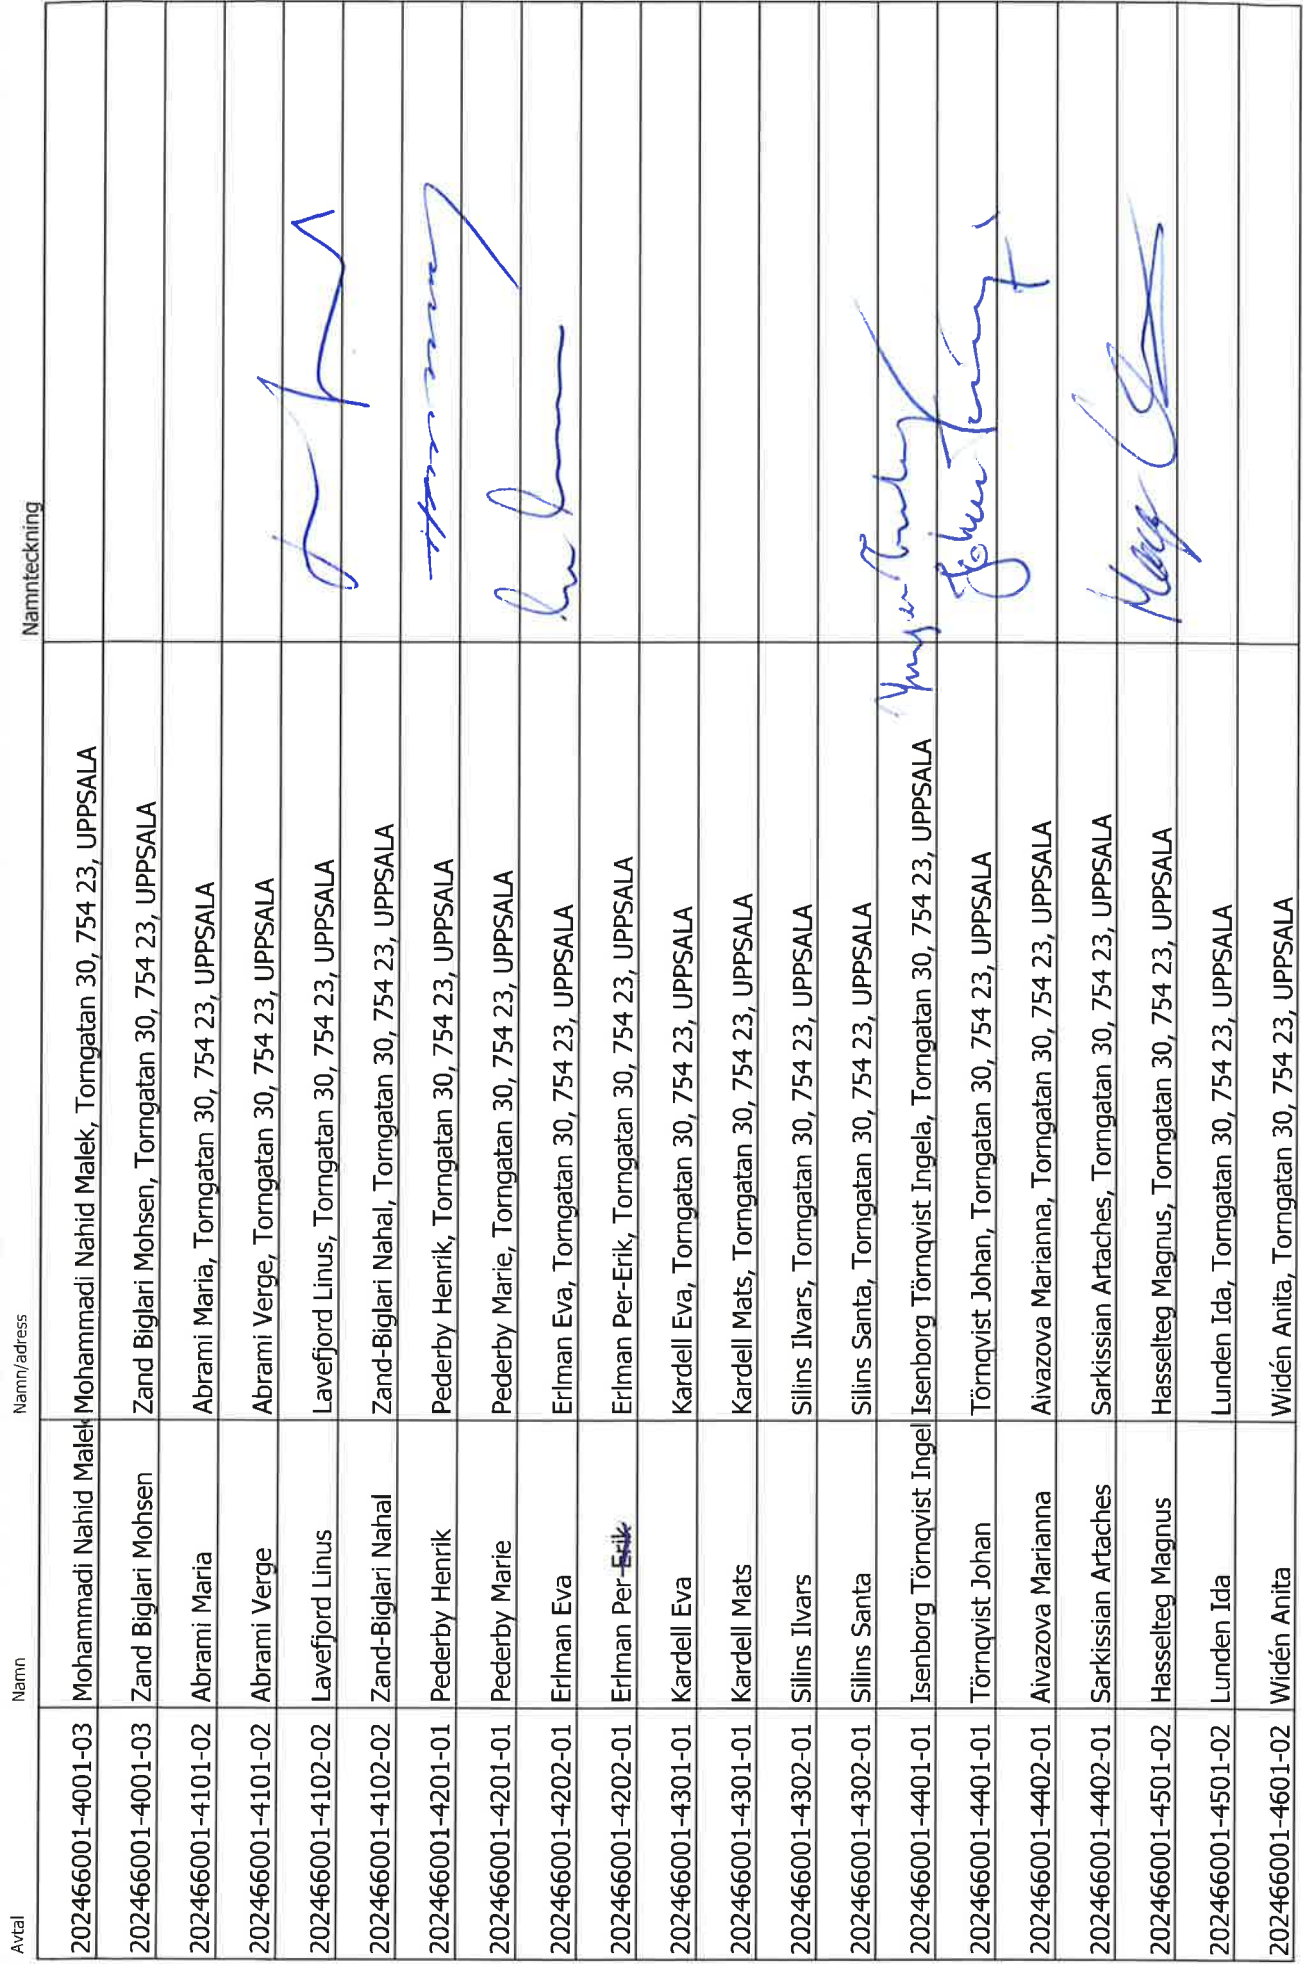 Avtal Namn Namn/adress Namnteckning
202466001-4001-03 Mohammadi Nahid Malek Mohammadi Nahid Malek, Torngatan 30, 754 23, UPPSALA
202466001-4001-03 Zand Biglari Mohsen Zand Biglari Mohsen, Torngatan 30, 754 23, UPPSALA
202466001-4101-02 Abrami Maria Abrami Maria, Torngatan 30, 754 23, UPPSALA
202466001-4101-02 Abrami Verge Abrami Verge, Torngatan 30, 754 23, UPPSALA
202466001-4102-02 Lavefjord Linus Lavefjord Linus, Torngatan 30, 754 23, UPPSALA
202466001-4102-02 Zand-Biglari Nahal Zand-Biglari Nahal, Torngatan 30, 754 23, UPPSALA
202466001-4201-01 Pederby Henrik Pederby Henrik, Torngatan 30, 754 23, UPPSALA
202466001-4201-01 Pederby Marie Pederby Marie, Torngatan 30, 754 23, UPPSALA
202466001-4202-01 Erlman Eva Erlman Eva, Torngatan 30, 754 23, UPPSALA
202466001-4202-01 Erlman Per-Erik Erlman Per-Erik, Torngatan 30, 754 23, UPPSALA
202466001-4301-01 Kardell Eva Kardell Eva, Torngatan 30, 754 23, UPPSALA
202466001-4301-01 Kardell Mats Kardell Mats, Torngatan 30, 754 23, UPPSALA
202466001-4302-01 Silins Ilvars Silins Ilvars, Torngatan 30, 754 23, UPPSALA
202466001-4302-01 Silins Santa Silins Santa, Torngatan 30, 754 23, UPPSALA
202466001-4401-01 Isenborg Törnqvist Ingel Isenborg Törnqvist Ingela, Torngatan 30, 754 23, UPPSALA
202466001-4401-01 Törnqvist Johan Törnqvist Johan, Torngatan 30, 754 23, UPPSALA Johan
202466001-4402-01 Aivazova Marianna Aivazova Marianna, Torngatan 30, 754 23, UPPSALA
202466001-4402-01 Sarkissian Artaches Sarkissian Artaches, Torngatan 30, 754 23, UPPSALA
202466001-4501-02 Hasselteg Magnus Hasselteg Magnus, Torngatan 30, 754 23, UPPSALA
202466001-4501-02 Lunden Ida Lunden Ida, Torngatan 30, 754 23, UPPSALA
202466001-4601-02 Widén Anita Widén Anita, Torngatan 30, 754 23, UPPSALA